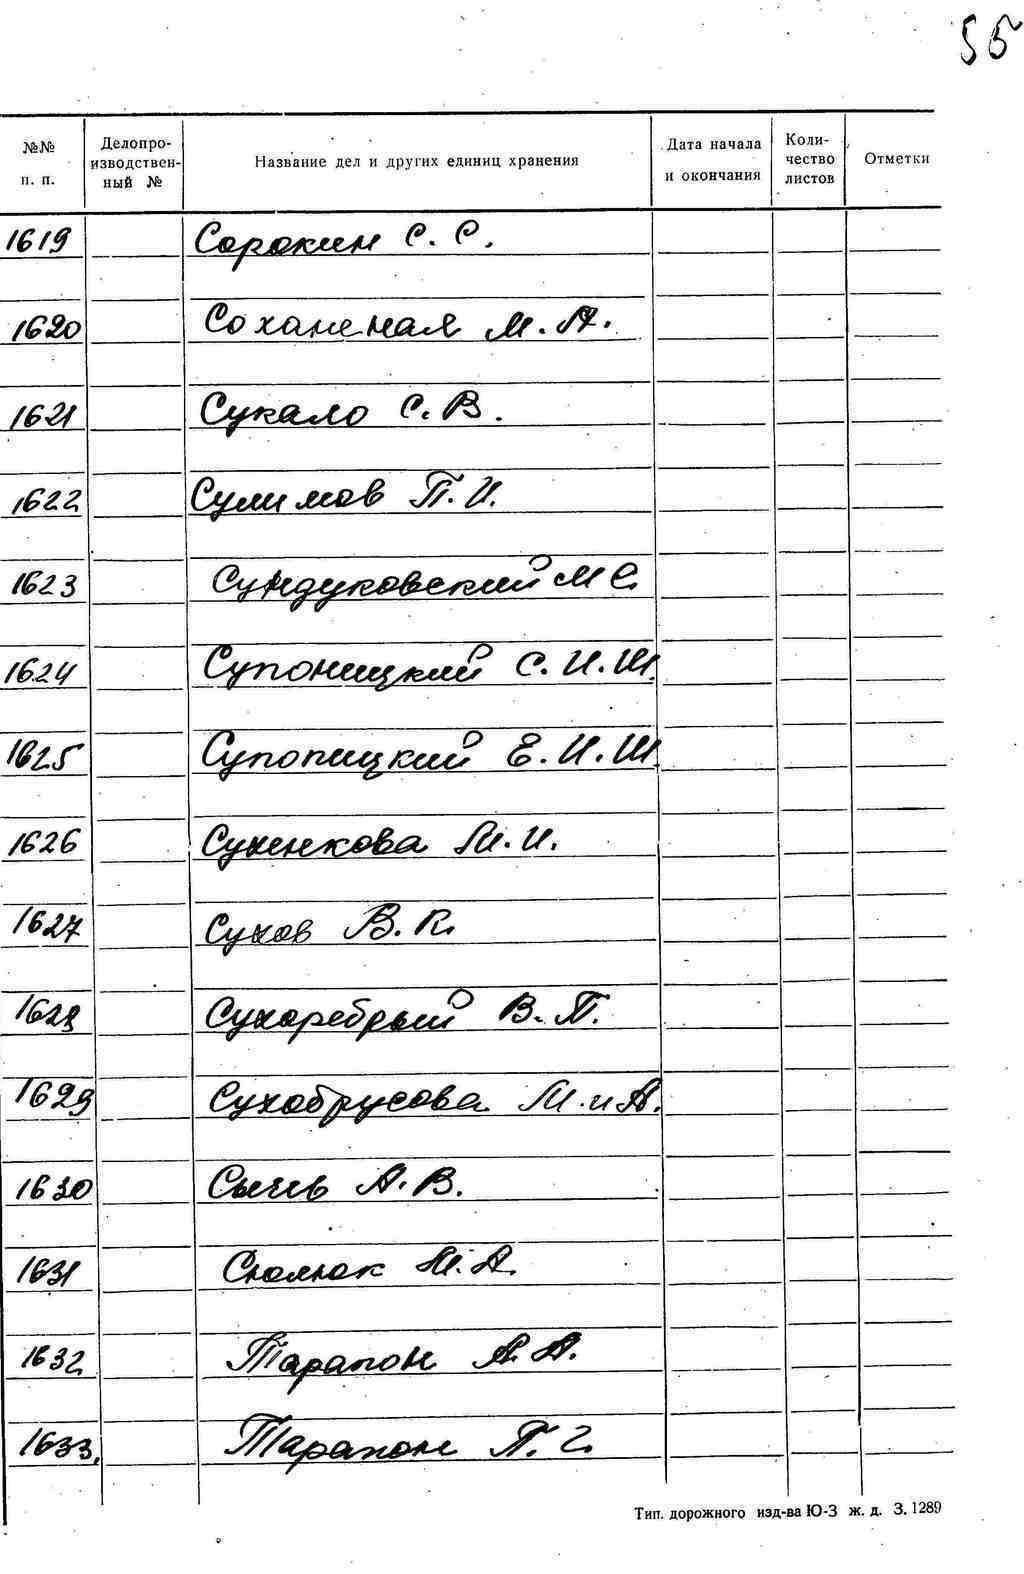 55
№№ п. п. Делопроизводственный № Название дел и других единиц хранения Дата начала и окончания Количество листов Отметки
1619 Сорокин С. С.
1620 М. А.
1621 Сукало С. В.
1622 Сулимов П. И.
1623 Сундуковский М С.
1624 Супоницкий С. И. Ш.
1625 Супопицкий Е. И. Ш.
1626 Сученкова М. И.
1627 Сухов В. К.
1628 Сухоребрый В. П.
1629 Сухобрусова М. и А.
1630 Сычь А. В.
1631 М. А.
1632 Тарапон А. А.
1633. Тарапон П. Г.
Тип. дорожного изд-ва Ю-З ж. д. З. 1289